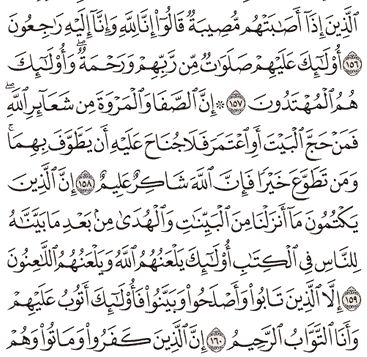 ٱلَّذِينَ إِذَآ أَصَٰبَتْهُم مُّصِيبَةٌ قَالُوٓا۟ إِنَّا لِلَّهِ وَإِنَّآ إِلَيْهِ رَٰجِعُونَ
١٥٦ أُو۟لَٰٓئِكَ عَلَيْهِمْ صَلَوَٰتٌ مِّن رَّبِّهِمْ وَرَحْمَةٌ ۖ وَأُو۟لَٰٓئِكَ
هُمُ ٱلْمُهْتَدُونَ ١٥٧ ۞ إِنَّ ٱلصَّفَا وَٱلْمَرْوَةَ مِن شَعَآئِرِ ٱللَّهِ ۖ
فَمَنْ حَجَّ ٱلْبَيْتَ أَوِ ٱعْتَمَرَ فَلَا جُنَاحَ عَلَيْهِ أَن يَطَّوَّفَ بِهِمَا ۚ
وَمَن تَطَوَّعَ خَيْرًا فَإِنَّ ٱللَّهَ شَاكِرٌ عَلِيمٌ ١٥٨ إِنَّ ٱلَّذِينَ
يَكْتُمُونَ مَآ أَنزَلْنَا مِنَ ٱلْبَيِّنَٰتِ وَٱلْهُدَىٰ مِنۢ بَعْدِ مَا بَيَّنَّٰهُ
لِلنَّاسِ فِى ٱلْكِتَٰبِ أُو۟لَٰٓئِكَ يَلْعَنُهُمُ ٱللَّهُ وَيَلْعَنُهُمُ ٱللَّٰعِنُونَ
١٥٩ إِلَّا ٱلَّذِينَ تَابُوا۟ وَأَصْلَحُوا۟ وَبَيَّنُوا۟ فَأُو۟لَٰٓئِكَ أَتُوبُ عَلَيْهِمْ
وَأَنَا ٱلتَّوَّابُ ٱلرَّحِيمُ ١٦٠ إِنَّ ٱلَّذِينَ كَفَرُوا۟ وَمَاتُوا۟ وَهُمْ